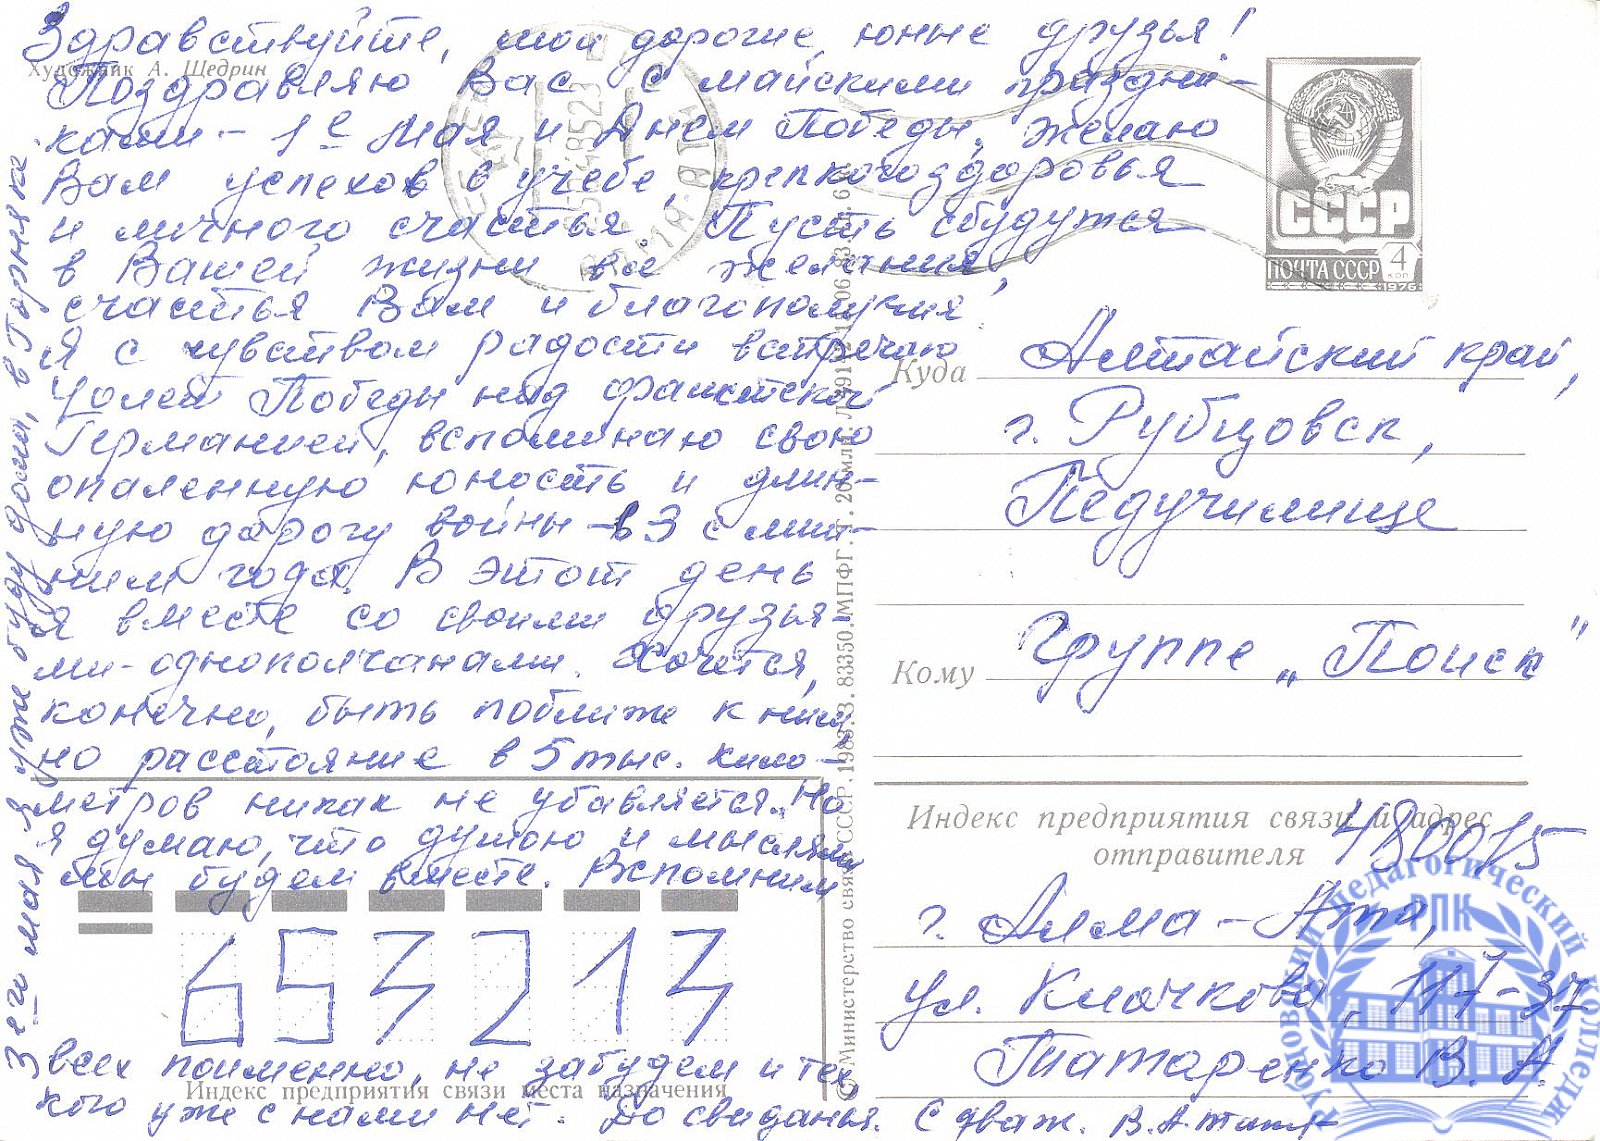 Здравствуйте, мои дорогие, юные друзья!
Художник А. Щедрин
Поздравляю Вас с майскими праздни-
ками - 1е Мая и Днем Победы, желаю
Вам успехов в учебе, крепкого здоровья
и личного счастья. Пусть сбудутся
в Вашей жизни все желания,
счастья Вам и благополучия.
Я с чувством радости встречаю
40 лет Победы над фашистской
Германией, вспоминаю свою
опаленную юность и длин-
ную дорогу войны - в 3 с лиш-
ним года. В этот день
я вместе со своими друзья-
ми-однополчанами. Хочется,
конечно, быть поближе к ним,
но расстояние в 5 тыс. кило-
метров никак не убавляется. Но
я думаю, что душою и мыслями
мы будем вместе. Вспомним
всех поименно, не забудем и тех,
кого уже с нами нет. До свиданья. С уваж. В. А. Тат
3его мая я уже буду дома, в Горняке.
658213
Индекс предприятия связи места назначения
© Министерство связи СССР. 1983. З. 83350. МПФГ.
ПОЧТА СССР 4 КОП
СССР
1976
Куда Алтайский край,
г. Рубцовск,
Педучилище
Кому Группе „Поиск"
Индекс предприятия связи и адрес
отправителя 480015
г. Алма-Ата,
ул. Клочкова, 117-37
Татаренко В. А.
Рубцовский педагогический колледж
РПК